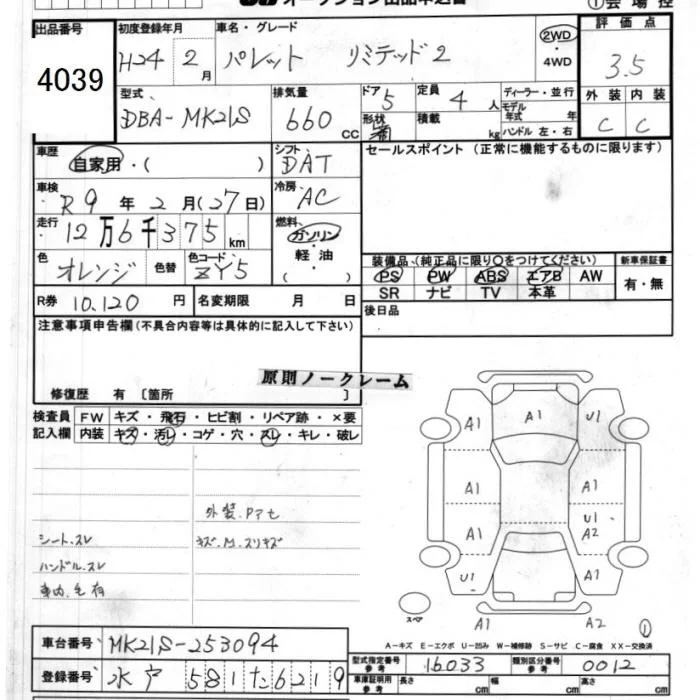 オークション出品申込書
①会場控
出品番号 4039
初度登録年月 H24 2月
車名・グレード パレット リミテッド2
2WD・4WD
評価点 3.5
型式 DBA-MK21S
排気量 660 cc
ドア 5
定員 4 人
形状 積載 kg
ディーラー・並行
モデル年式 年式
ハンドル 左・右
外装 内装
C C
車歴 自家用・( )
シフト DAT
セールスポイント (正常に機能するものに限ります)
車検 R9年 2月(27日)
冷房 AC
走行 12万6千375 km
燃料 ガソリン・軽油・( )
色 オレンジ 色替 色コード ZY5
装備品(純正品に限り○をつけてください) 新車保証書
PS PW ABS エアB AW 有・無
SR ナビ TV 本革
R券 10,120 円 名変期限 月 日
後日品
注意事項申告欄(不具合内容等は具体的に記入して下さい)
原則ノークレーム
修復歴 有 〔箇所 〕
検査員記入欄
FW キズ・飛石・ヒビ割・リペア跡・×要
内装 キズ・汚レ・コゲ・穴・スレ・キレ・破レ
A1 A1 U1
A1 A1
U1
A1 A2
U1 A1
A1 A2
外装.Pアセ
シート.スレ キズ.M.スリキズ
ハンドル.スレ
車内.毛有
スペア
①
A-キズ E-エクボ U-凹み W-補修跡 S-サビ C-腐食 XX-交換済
車台番号 MK21S-253094
型式指定番号 参考 16033 類別区分番号 参考 0012
登録番号 水戸 581 た 6219
車庫証明用 参考 長さ cm 幅 cm 高さ cm